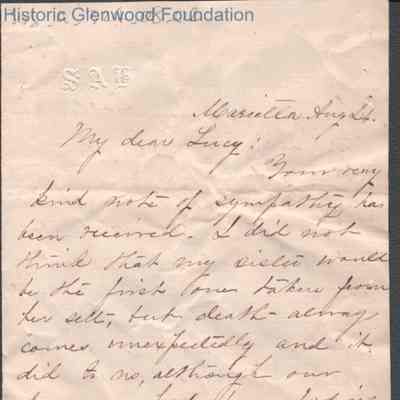 Historic Glenwood Foundation
SAB
Marietta Aug 24.
My dear Lucy:
Your very
kind note of sympathy has
been received. I did not
think that my sister would
be the first one taken from
her set, but death always
comes unexpectedly and it
did to us, although our